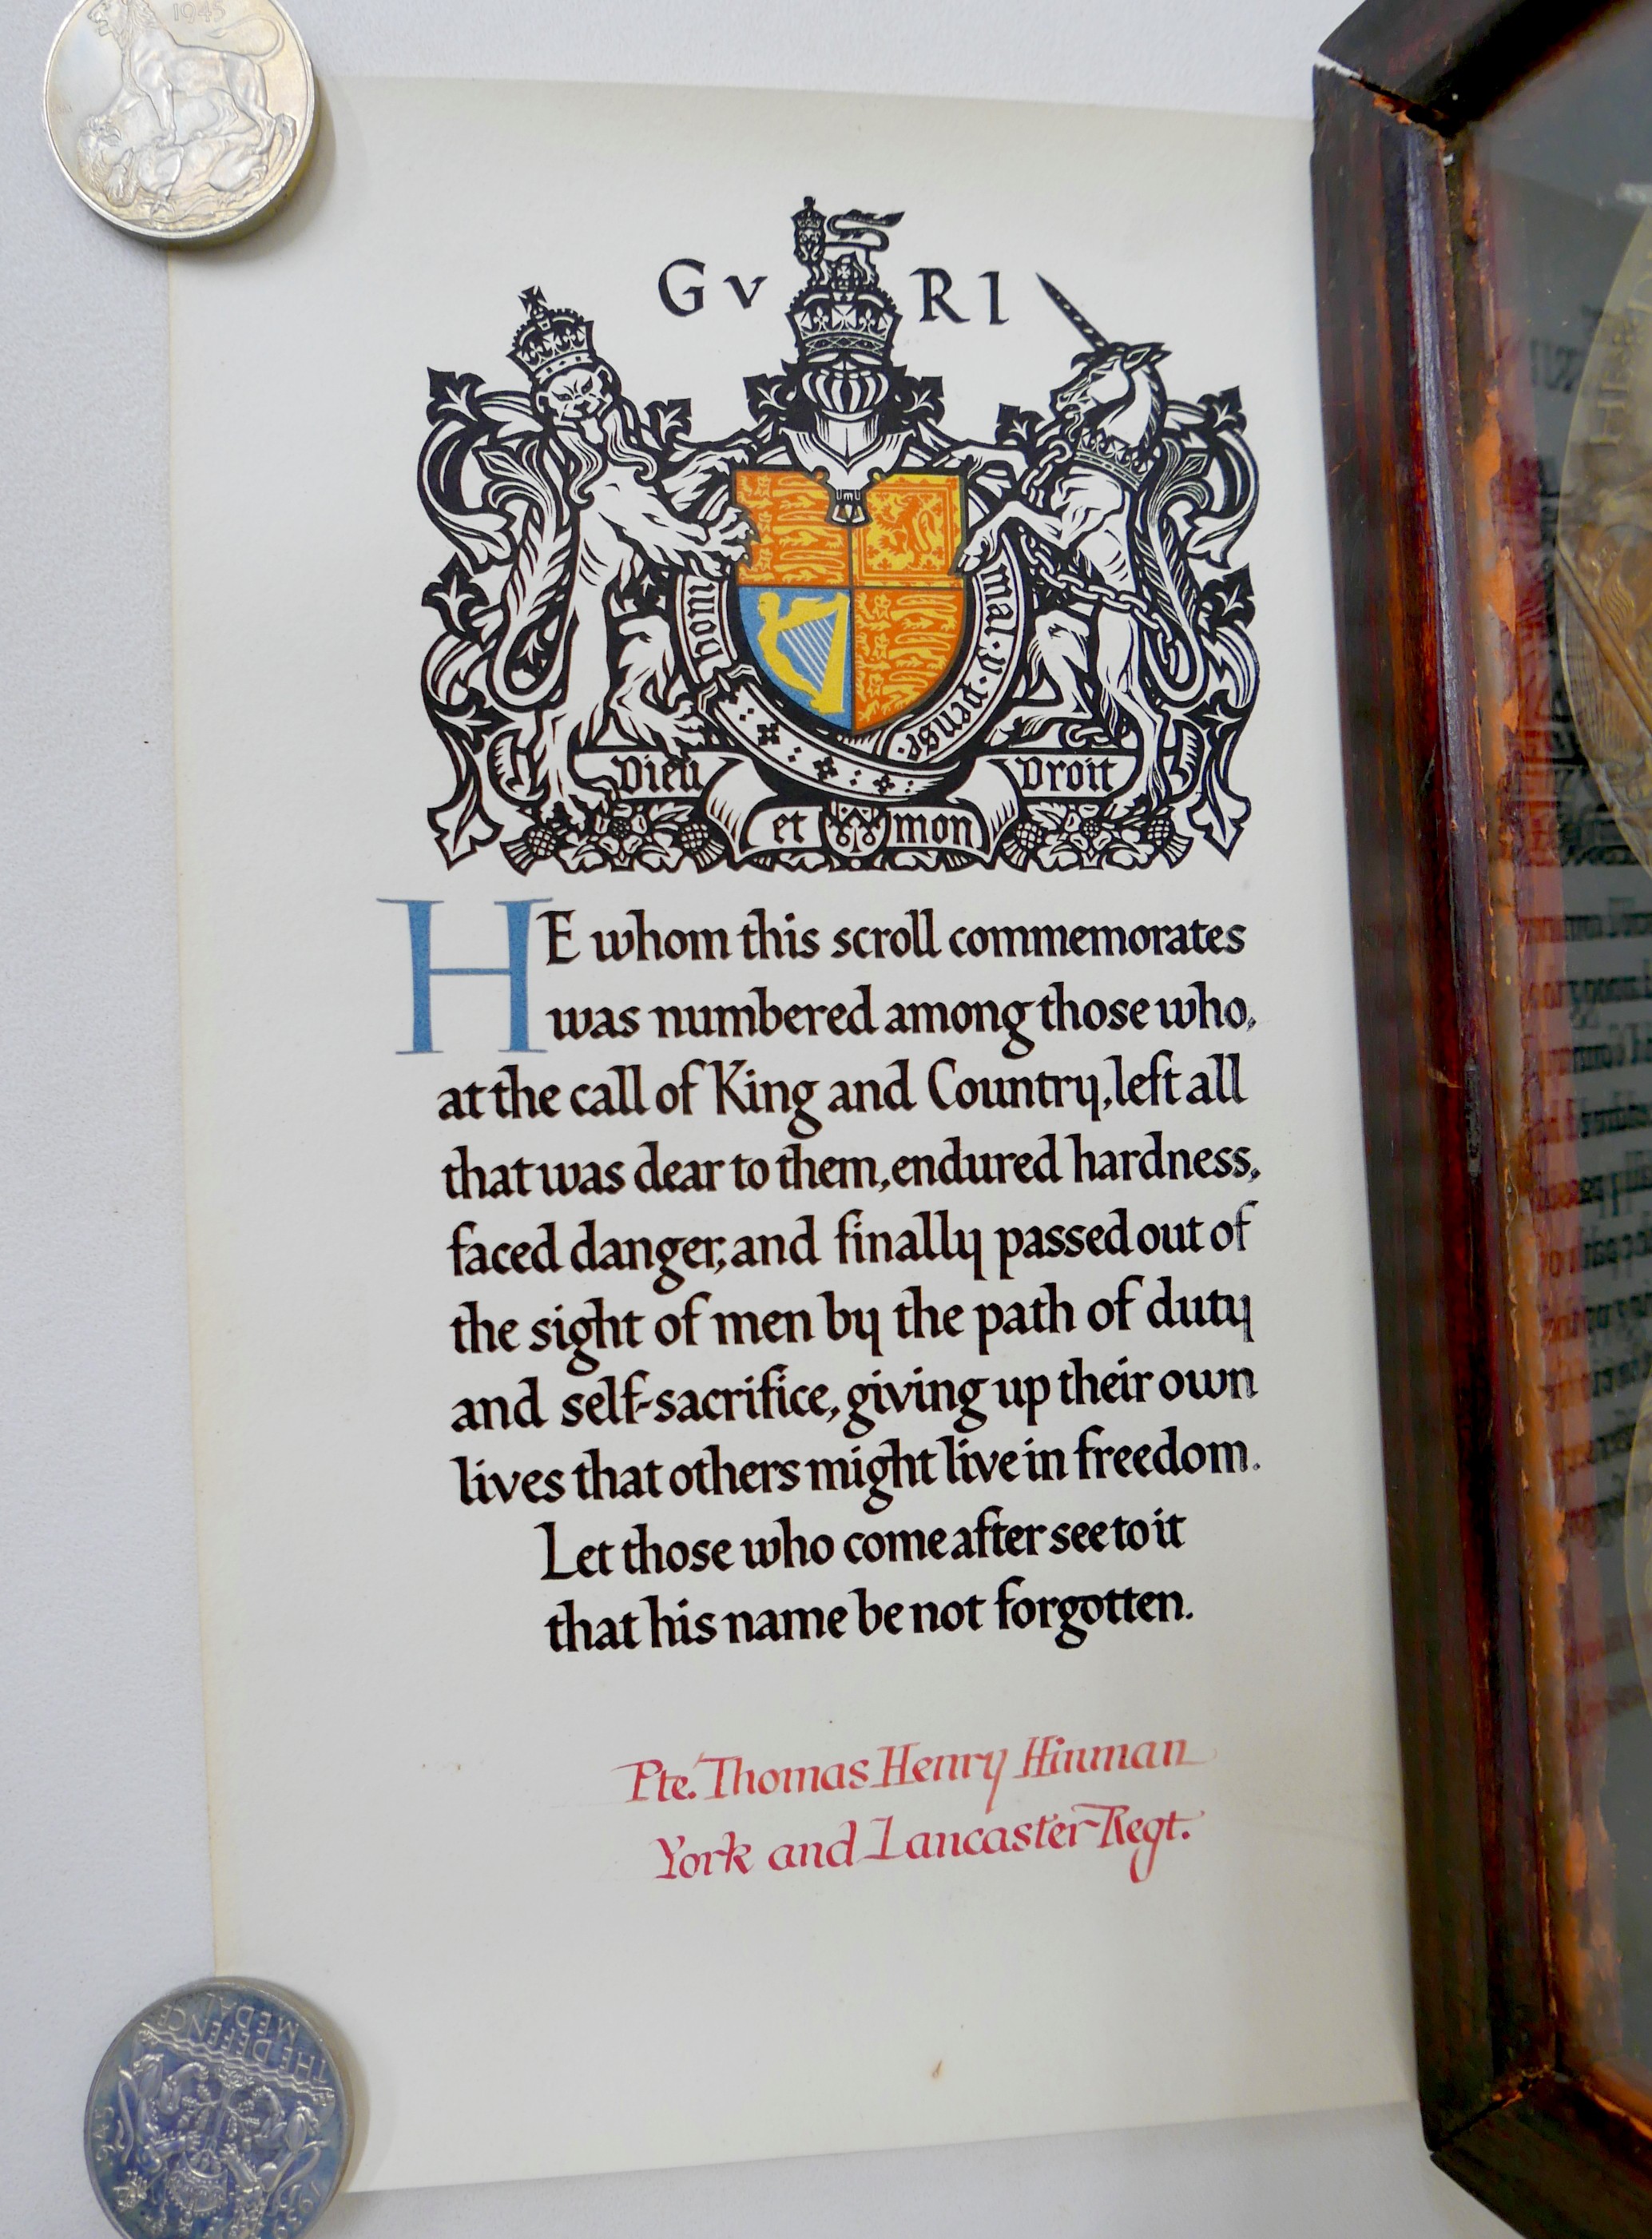 1945
GV RI
honi
mal·y·pense·
Dieu
Droit
et mon
HE whom this scroll commemorates
was numbered among those who,
at the call of King and Country, left all
that was dear to them, endured hardness,
faced danger, and finally passed out of
the sight of men by the path of duty
and self-sacrifice, giving up their own
lives that others might live in freedom.
Let those who come after see to it
that his name be not forgotten.
Pte. Thomas Henry Hinman
York and Lancaster Regt.
THE DEFENCE
MEDAL
1939
1945